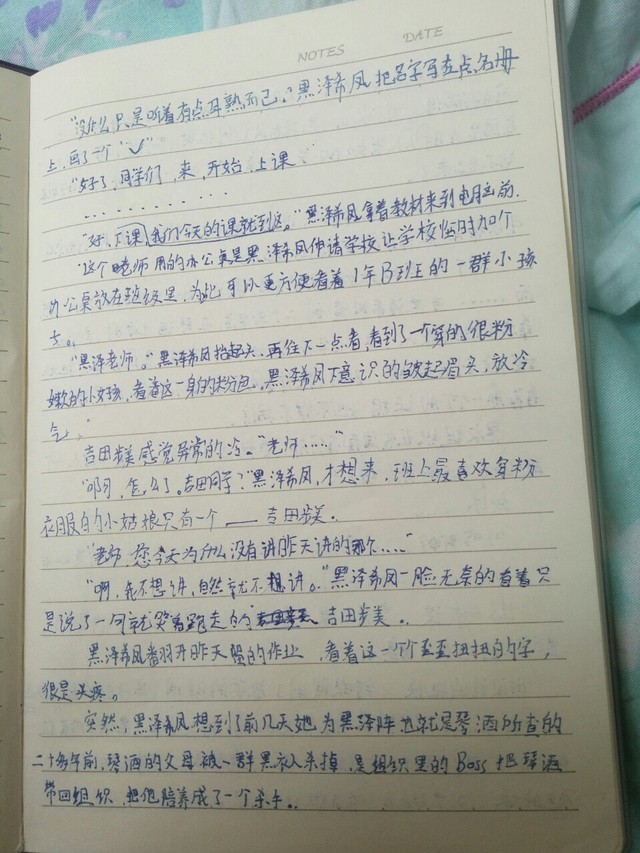 NOTES DATE
"没什么只是听着有点耳熟而已。"黑泽希凤把名字写在点名册
上,画了一个"✓"
"好了,同学们,来,开始,上课
· · · · · · · · · ·
"好,下课,我们今天的课就到这。"黑泽希凤拿着教材来到电脑前.
这个老师用的办公桌是黑泽希凤申请学校让学校临时加个
办公桌放在班级里,为此可以更方便看着1年B班的一群小孩
子。
"黑泽老师。"黑泽希凤抬起头,再往下一点看,看到了一个穿的很粉
嫩的小女孩,看着这一身的粉色,黑泽希凤下意识的皱起眉头,放冷
气.
吉田步美感觉异常的冷。"老师……"
"啊,怎么了。吉田同学?"黑泽希凤,才想来,班上最喜欢穿粉
衣服的小姑娘只有一个——吉田步美.
"老师,您今天为什么没有讲昨天讲的那个……"
"啊,我不想讲,自然就不想讲。"黑泽希凤一脸无奈的看着只
是说了一句就笑着跑走的 吉田步美。
黑泽希凤翻开昨天留的作业,看着这一个个歪歪扭扭的字,
很是头疼。
突然,黑泽希凤想到了前几天她为黑泽阵也就是琴酒所查的
二十多年前,琴酒的父母被一群黑衣人杀掉,是组织里的Boss把琴酒
带回组织,把他培养成了一个杀手。